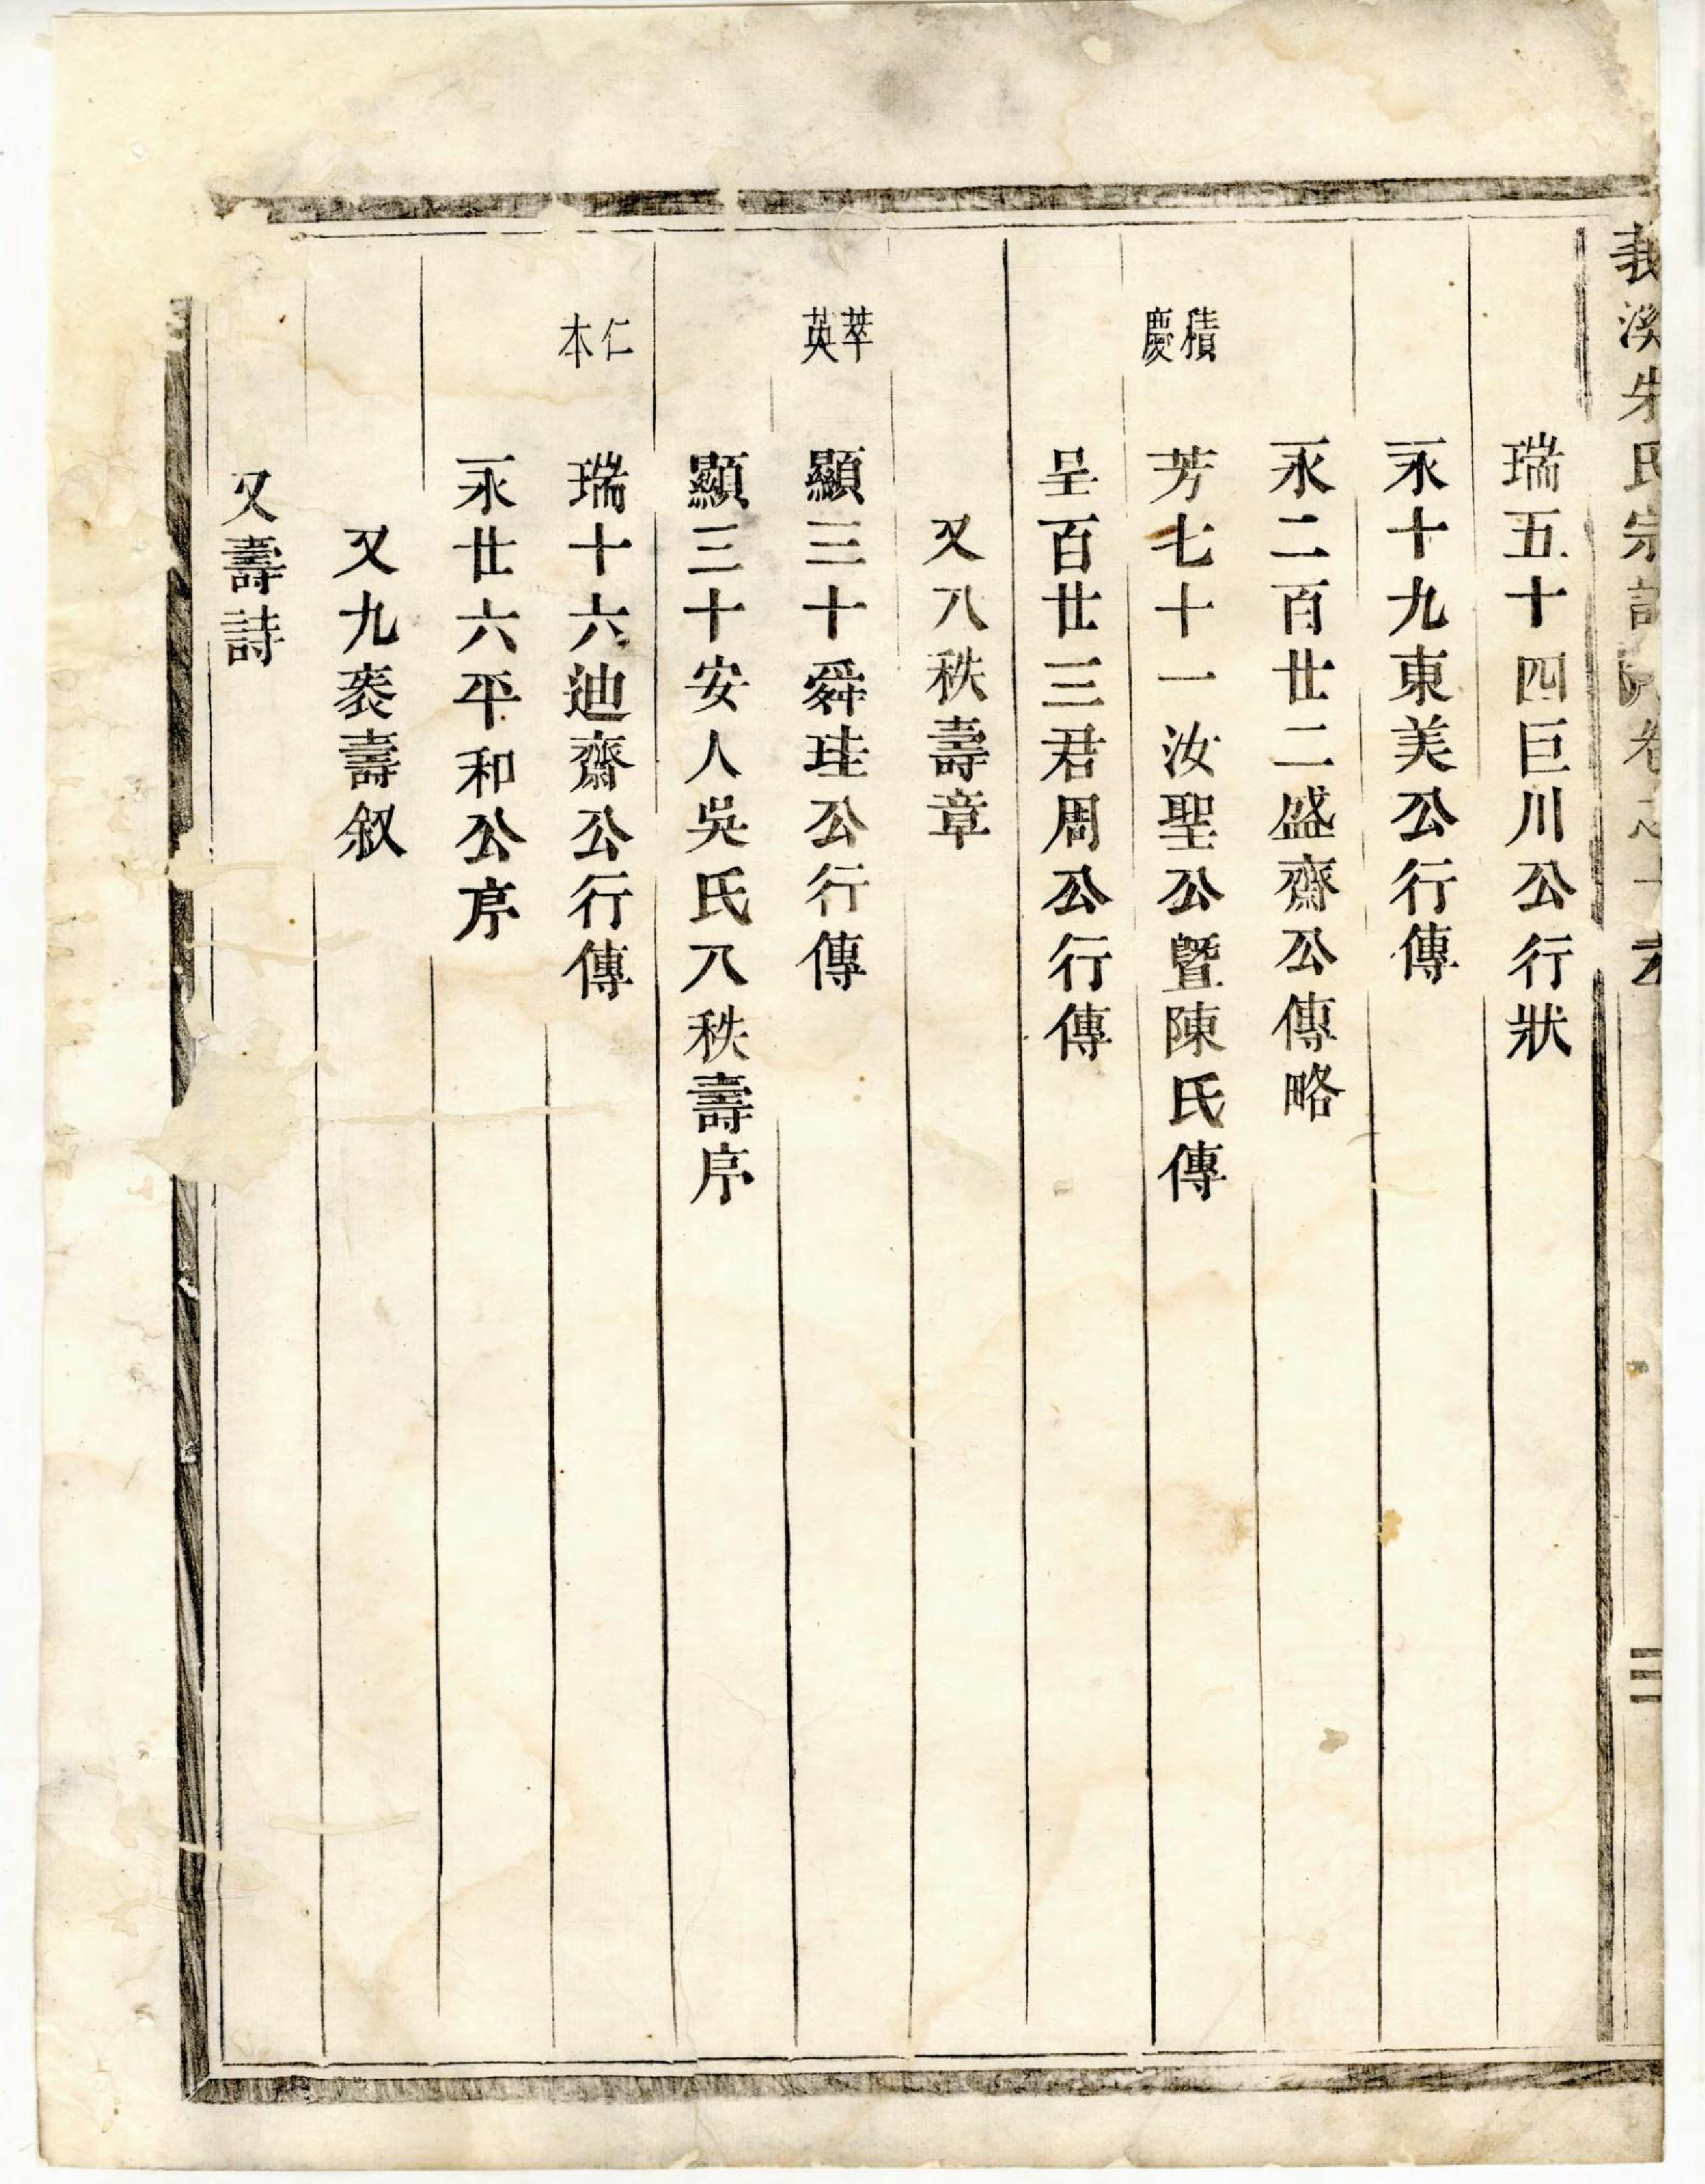 義溪朱氏宗譜 卷之十
三
瑞五十四巨川公行狀
永十九東美公行傳
永二百廿二盛齋公傳略
積慶
芳七十一汝聖公曁陳氏傳
呈百廿三君周公行傳
又八秩壽章
萃英
顯三十舜珪公行傳
顯三十安人吳氏八秩壽序
仁本
瑞十六迪齋公行傳
永廿六平和公序
又九袠壽叙
又壽詩